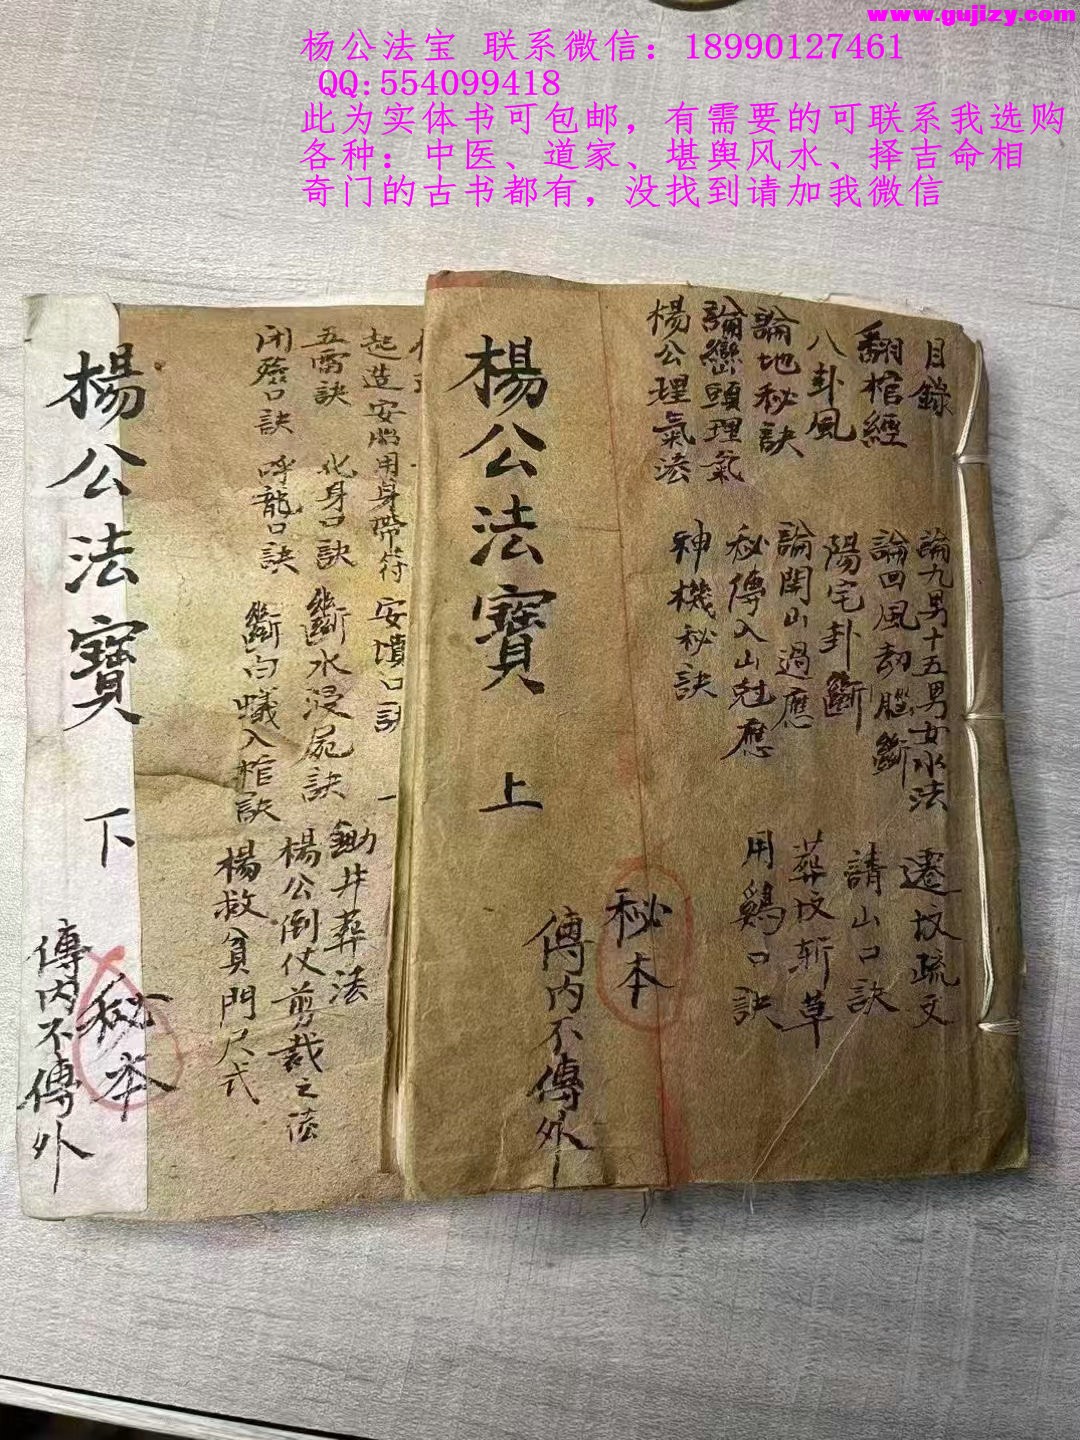 www.gujizy.com
杨公法宝 联系微信：18990127461
QQ:554099418
此为实体书可包邮，有需要的可联系我选购
各种：中医、道家、堪舆风水、择吉命相
奇门的古书都有，没找到请加我微信
目錄
翻棺經
八卦風
論地秘訣
論巒頭理氣
楊公理氣法
論九男十五男女水法
論回風劫腦斷
陽宅卦斷
論開山過應
秘傳入山尅應
神機秘訣
遷坟疏文
請山口訣
葬坟斬草
用鷄口訣
楊公法寶 上
秘本
傳內不傳外
起造安
用身帶符
安墳口訣
五雷訣
化身口訣
斷水浸屍訣
閉殮口訣
呼龍口訣
斷白蟻入棺訣
鋤井葬法
楊公倒仗剪裁之法
楊救貧門尺式
楊公法寶 下
秘本
傳內不傳外